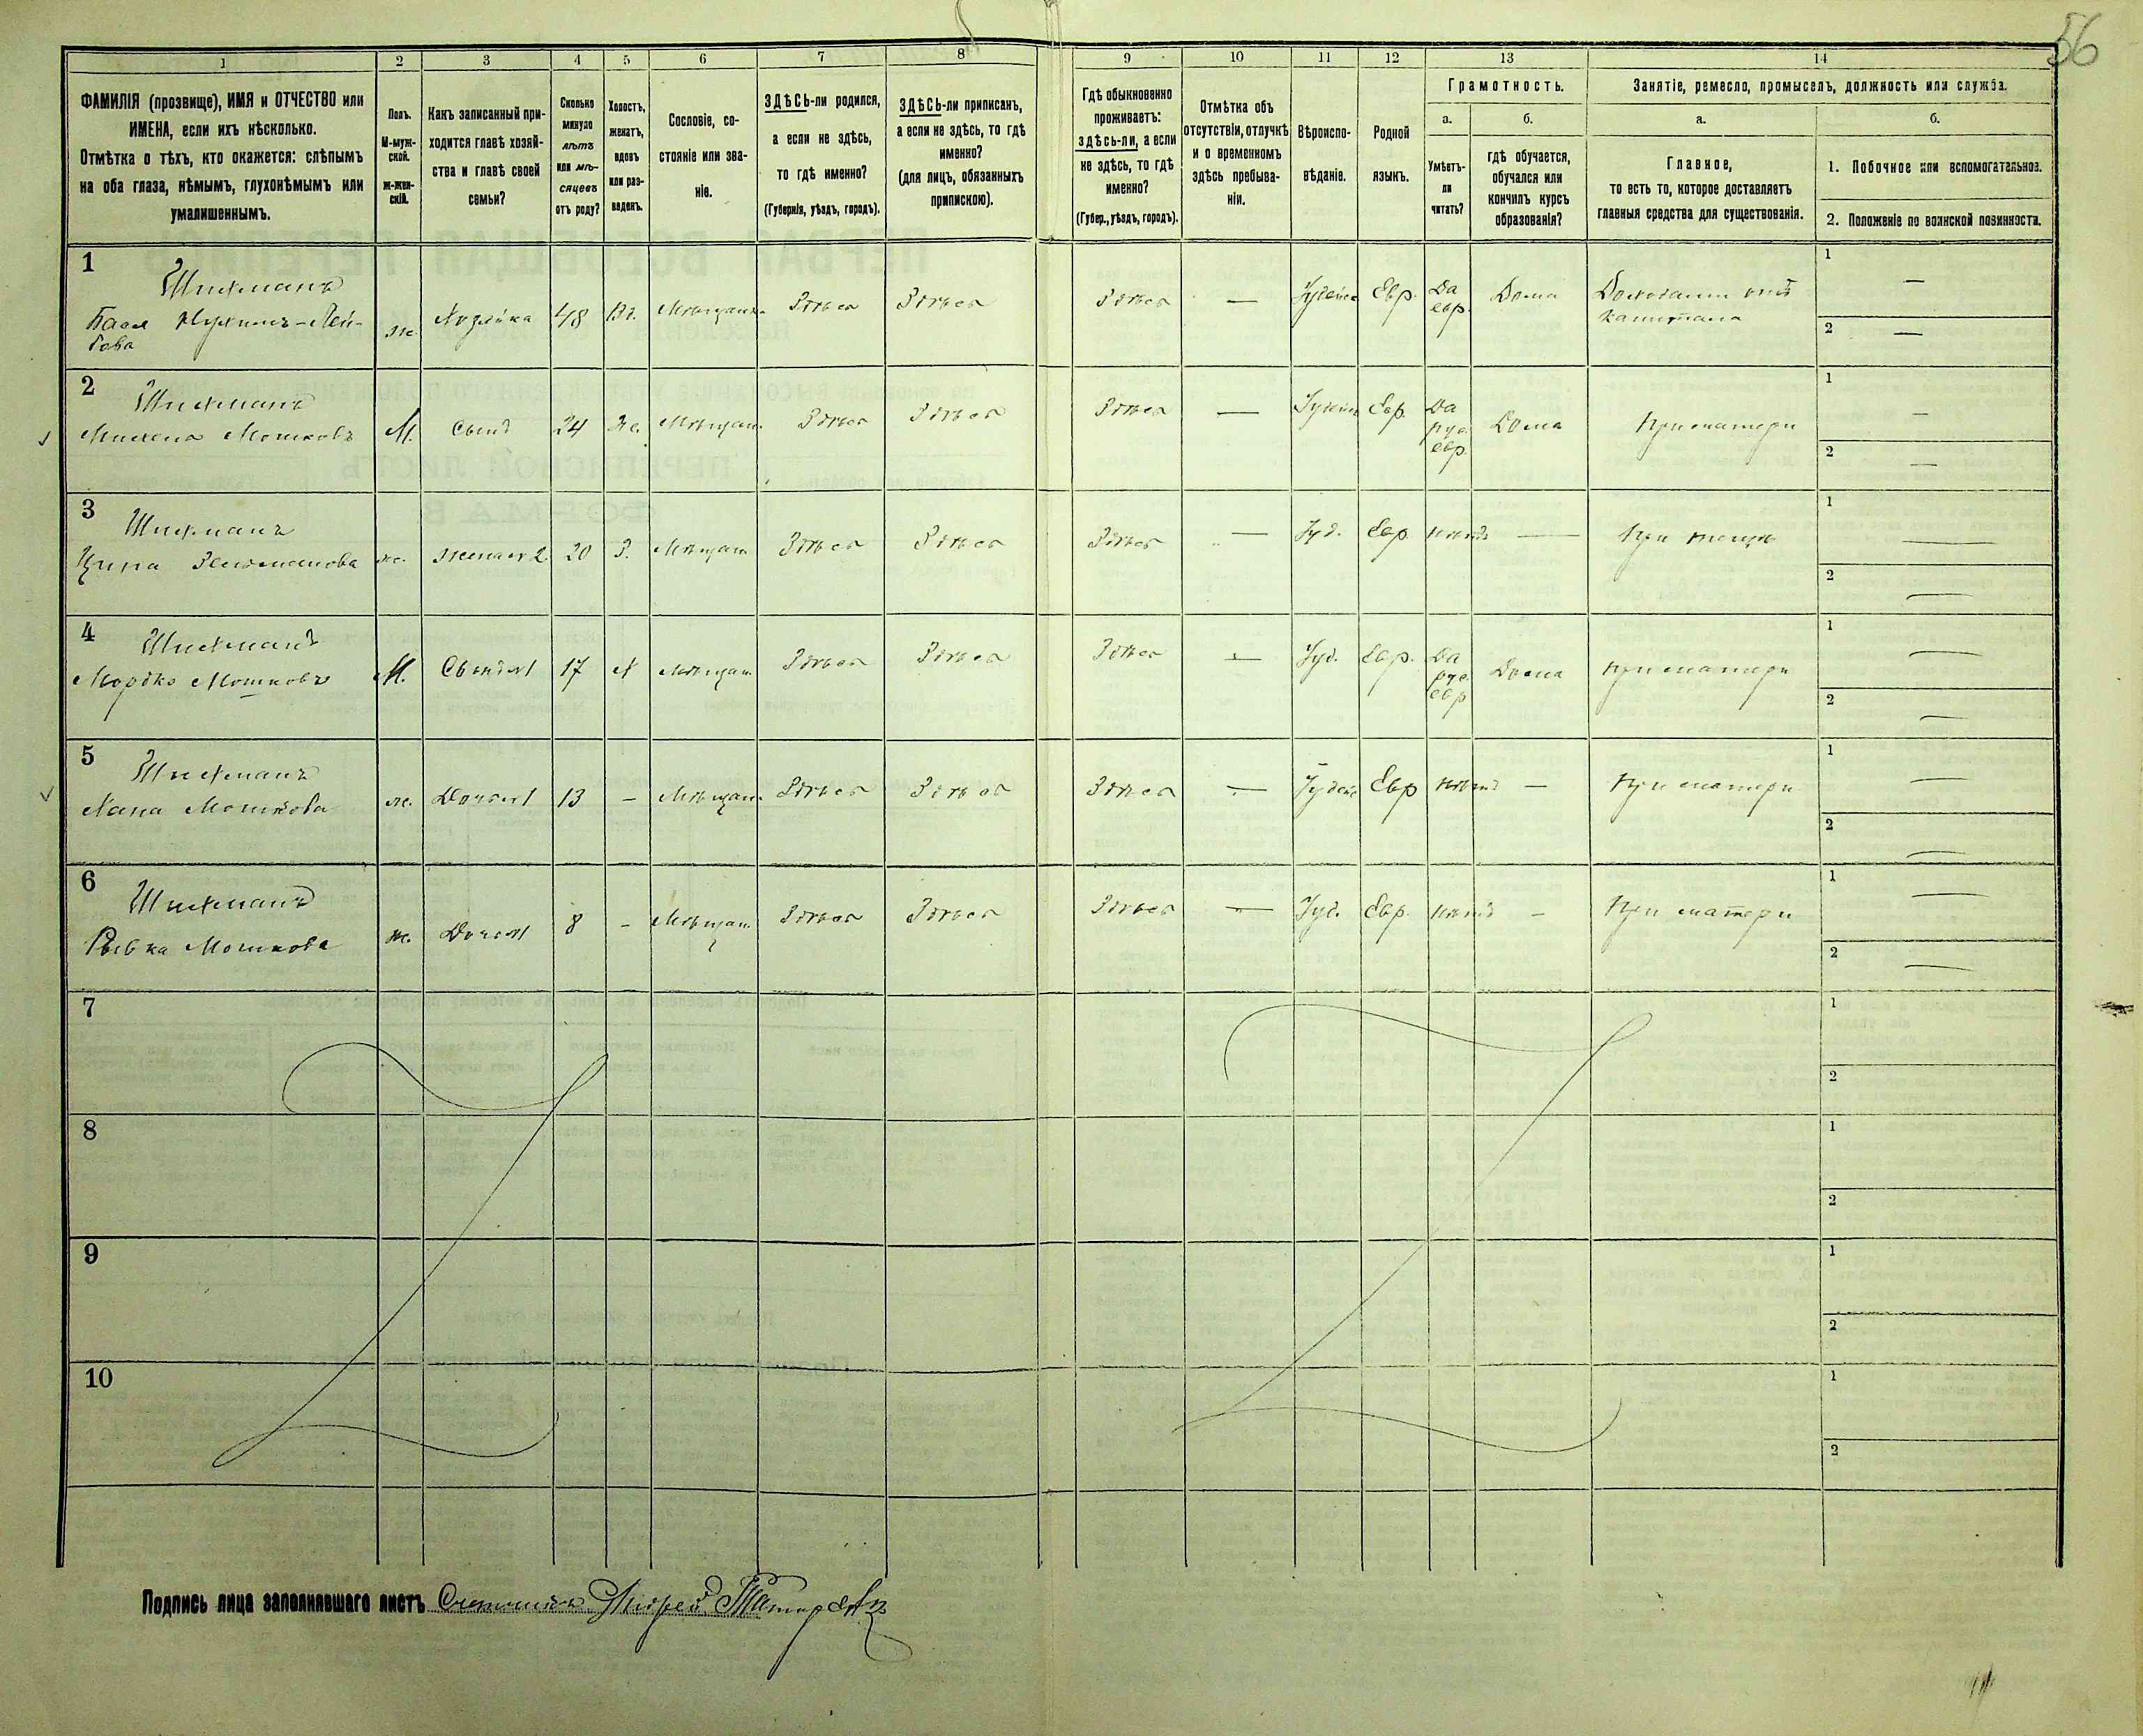 56
1 2 3 4 5 6 7 8 9 10 11 12 13 14
ФАМИЛІЯ (прозвище), ИМЯ и ОТЧЕСТВО или
ИМЕНА, если ихъ нѣсколько.
Отмѣтка о тѣхъ, кто окажется: слѣпымъ
на оба глаза, нѣмымъ, глухонѣмымъ или
умалишеннымъ.
Полъ.
М-муж-
ской.
ж-жен-
скій.
Какъ записанный при-
ходится главѣ хозяй-
ства и главѣ своей
семьи?
Сколько
минуло
лѣтъ
или мѣ-
сяцевъ
отъ роду?
Холостъ,
женатъ,
вдовъ
или раз-
веденъ.
Сословіе, со-
стояніе или зва-
ніе.
ЗДѢСЬ-ли родился,
а если не здѣсь,
то гдѣ именно?
(Губернія, уѣздъ, городъ).
ЗДѢСЬ-ли приписанъ,
а если не здѣсь, то гдѣ
именно?
(для лицъ, обязанныхъ
припискою).
Гдѣ обыкновенно
проживаетъ:
здѣсь-ли, а если
не здѣсь, то гдѣ
именно?
(Губер., уѣздъ, городъ).
Отмѣтка объ
отсутствіи, отлучкѣ
и о временномъ
здѣсь пребыва-
ніи.
Вѣроиспо-
вѣданіе.
Родной
языкъ.
Грамотность.
а.
Умѣетъ-
ли
читать?
б.
гдѣ обучается,
обучался или
кончилъ курсъ
образованія?
Занятіе, ремесло, промыселъ, должность или служба.
а.
Главное,
то есть то, которое доставляетъ
главныя средства для существованія.
б.
1. Побочное или вспомогательное.
2. Положеніе по воинской повинности.
1
Шихманъ
Бася
ж. Хозяйка 48 Вд. Мѣщан. Здѣсь Здѣсь
Здѣсь — Іудейск Евр. Да
евр. Дома Доходами отъ
капитала
1 —
2 —
2
Шихманъ
Мошковъ
М. Сынъ 24 Ж. Мѣщан. Здѣсь Здѣсь
Здѣсь — Іудейс Евр. Да
рус.
евр. Дома При матери
1 —
2 —
3
Шихманъ
ж. жена № 2 20 З. Мѣщан Здѣсь Здѣсь
Здѣсь — Іуд. Евр. нѣтъ — При тещѣ
1 —
2 —
4
Шихманъ
Мордко Мошковъ
М. Сынъ №1 17 Х Мѣщан. Здѣсь Здѣсь
Здѣсь — Іуд. Евр. Да
рус.
евр Дома При матери
1 —
2 —
5
Шихманъ
Хана Мошкова
ж. Дочь №1 13 — Мѣщан. Здѣсь Здѣсь
Здѣсь — Іудейс Евр нѣтъ — При матери
1 —
2 —
6
Шихманъ
Рывка Мошкова
ж. Дочь №1 8 — Мѣщан. Здѣсь Здѣсь
Здѣсь — Іуд. Евр. нѣтъ — При матери
1 —
2 —
7
1
2
8
1
2
9
1
2
10
1
2
Подпись лица заполнявшаго листъ Счетчикъ Андрей